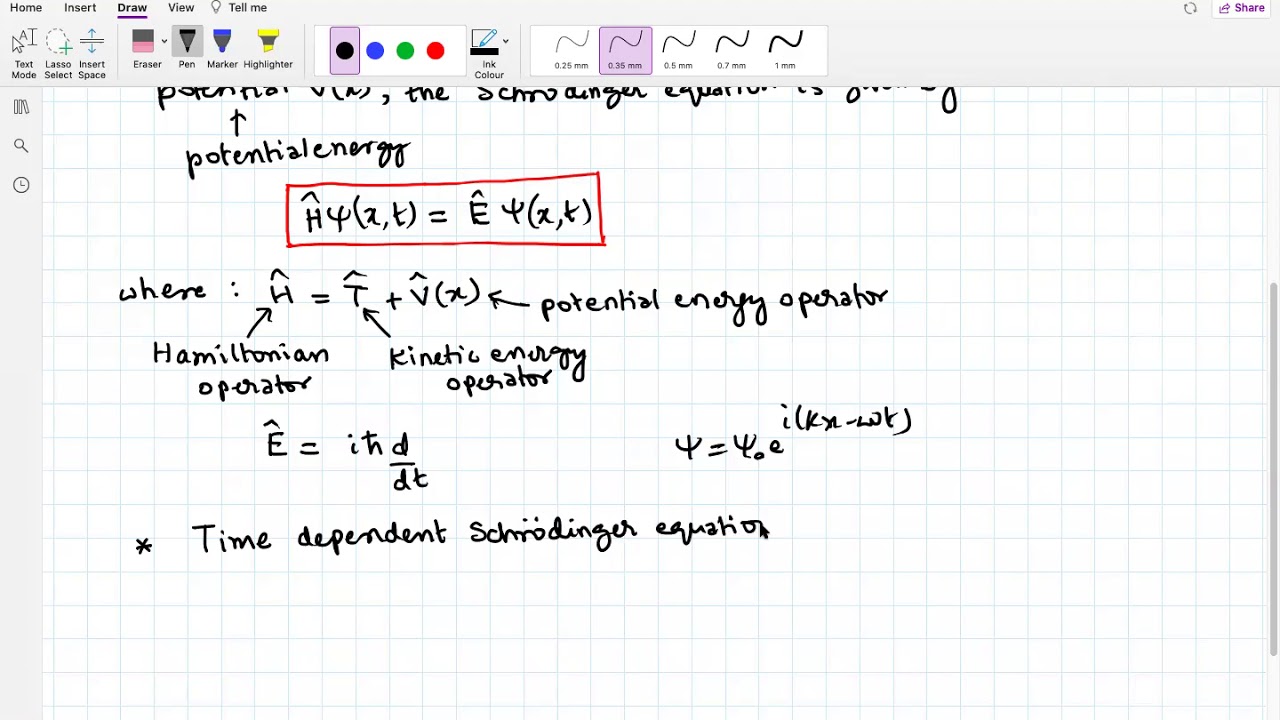 Home Insert Draw View Tell me
Share
Text Mode
Lasso Select
Insert Space
Eraser
Pen
Marker
Highlighter
Ink Colour
0.25 mm
0.35 mm
0.5 mm
0.7 mm
1 mm
potential V(x), the Schrödinger equation is given by
↑
potential energy
Ĥψ(x,t) = Ê ψ(x,t)
where : Ĥ = T̂ + V̂(x) ← potential energy operator
Hamiltonian operator
Kinetic energy operator
Ê = iħ d/dt
ψ = ψ₀ e^{i(kx-ωt)}
* Time dependent Schrödinger equation